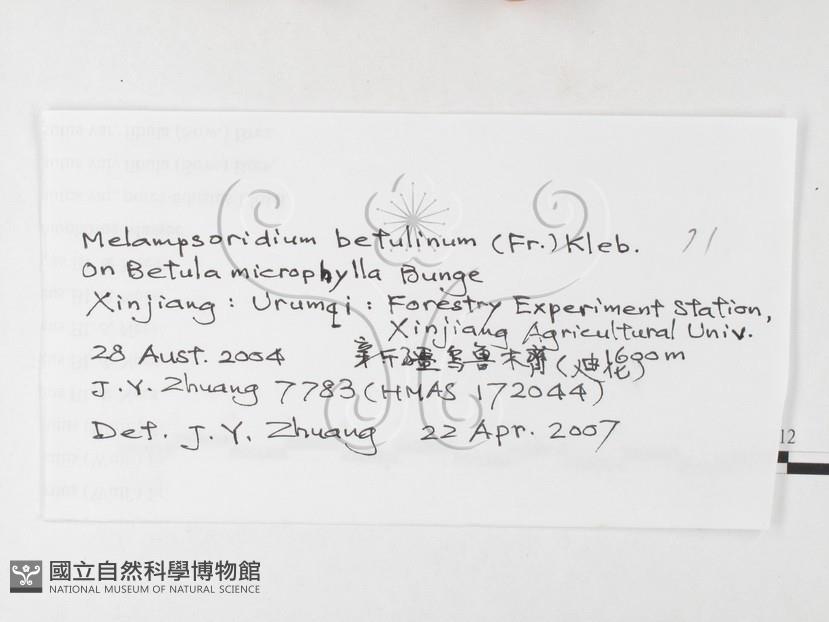 Melampsoridium betulinum (Fr.) Kleb. 71
On Betula microphylla Bunge
Xinjiang : Urumqi : Forestry Experiment Station,
Xinjiang Agricultural Univ.
28 Aust. 2004 新疆烏魯木齊(迪化) 1600m
J.Y. Zhuang 7783 (HMAS 172044)
Det. J. Y. Zhuang 22 Apr. 2007
12
國立自然科學博物館
NATIONAL MUSEUM OF NATURAL SCIENCE